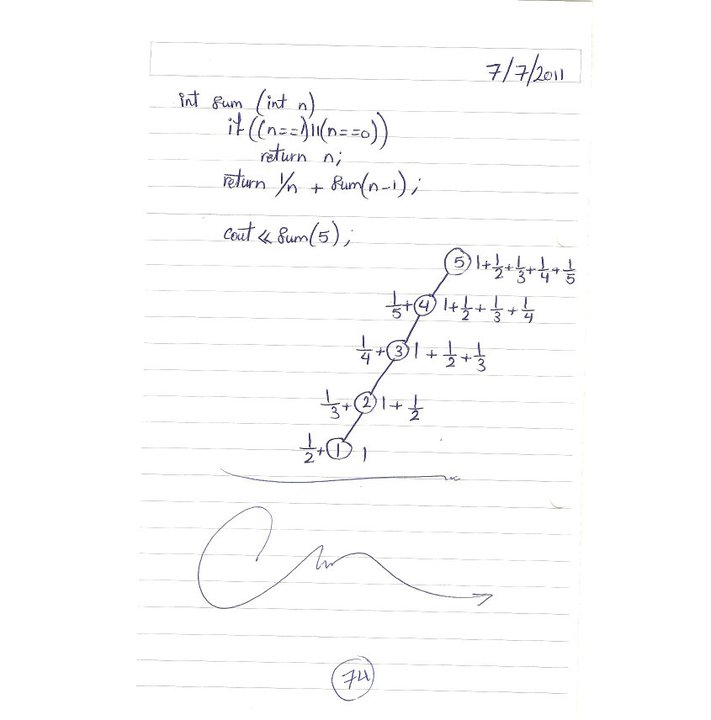 7/7/2011
int sum (int n)
if((n==1)||(n==0))
return n;
return 1/n + sum(n-1);
cout << sum(5);
5 1+1/2+1/3+1/4+1/5
1/5+ 4 1+1/2+1/3+1/4
1/4+ 3 1+1/2+1/3
1/3+ 2 1+1/2
1/2+ 1 1
74